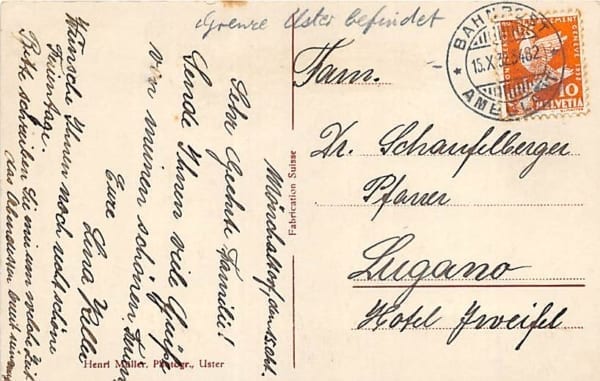 Grenze Uster befindet
Mönchaltorf, den 15. Okt.
Sehr Geehrte Familie!
Sende Ihnen viele Grüße
von meinen schönen Ferien
Eure
Lina
Wünsche Ihnen noch recht schöne
Ferientage.
Bitte schreiben Sie mir um welche Zeit
das
Henri Müller, Photogr., Uster
Fabrication Suisse
BAHNPOST
AMBULANT
15.X.32
HELVETIA
10
Fam.
Dr. Schaufelberger
Pfarrer
Lugano
Hotel Zweifel